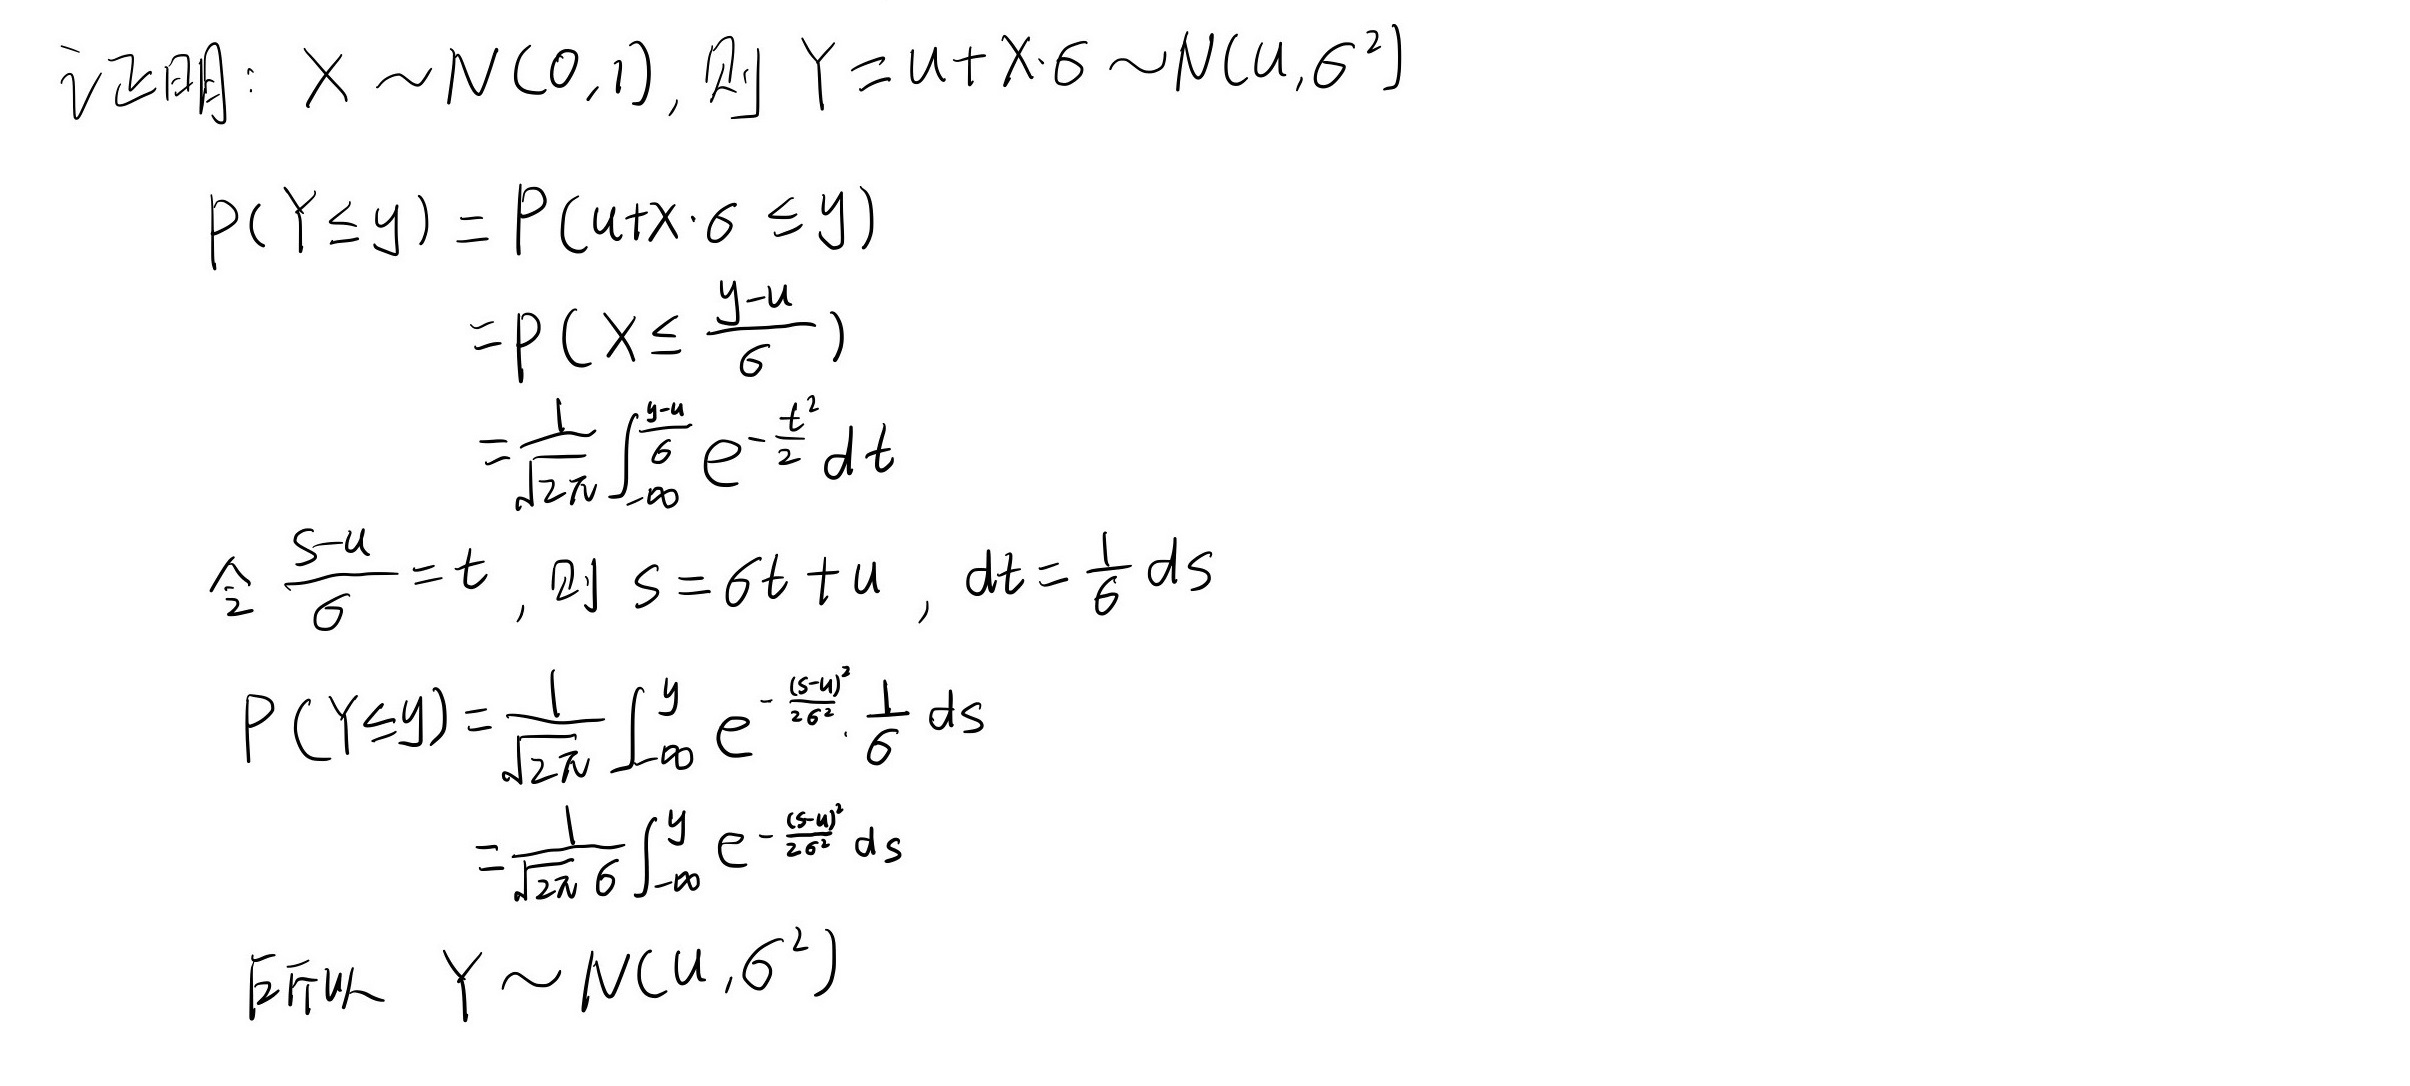 证明: X ~ N(0,1), 则 Y = u + X·σ ~ N(u, σ²)
P(Y ≤ y) = P(u+X·σ ≤ y)
= P(X ≤ \frac{y-u}{σ})
= \frac{1}{\sqrt{2π}} \int_{-∞}^{\frac{y-u}{σ}} e^{-\frac{t^2}{2}} dt
令 \frac{s-u}{σ} = t, 则 s = σt + u, dt = \frac{1}{σ} ds
P(Y ≤ y) = \frac{1}{\sqrt{2π}} \int_{-∞}^{y} e^{-\frac{(s-u)^2}{2σ^2}} · \frac{1}{σ} ds
= \frac{1}{\sqrt{2π} σ} \int_{-∞}^{y} e^{-\frac{(s-u)^2}{2σ^2}} ds
所以 Y ~ N(u, σ²)